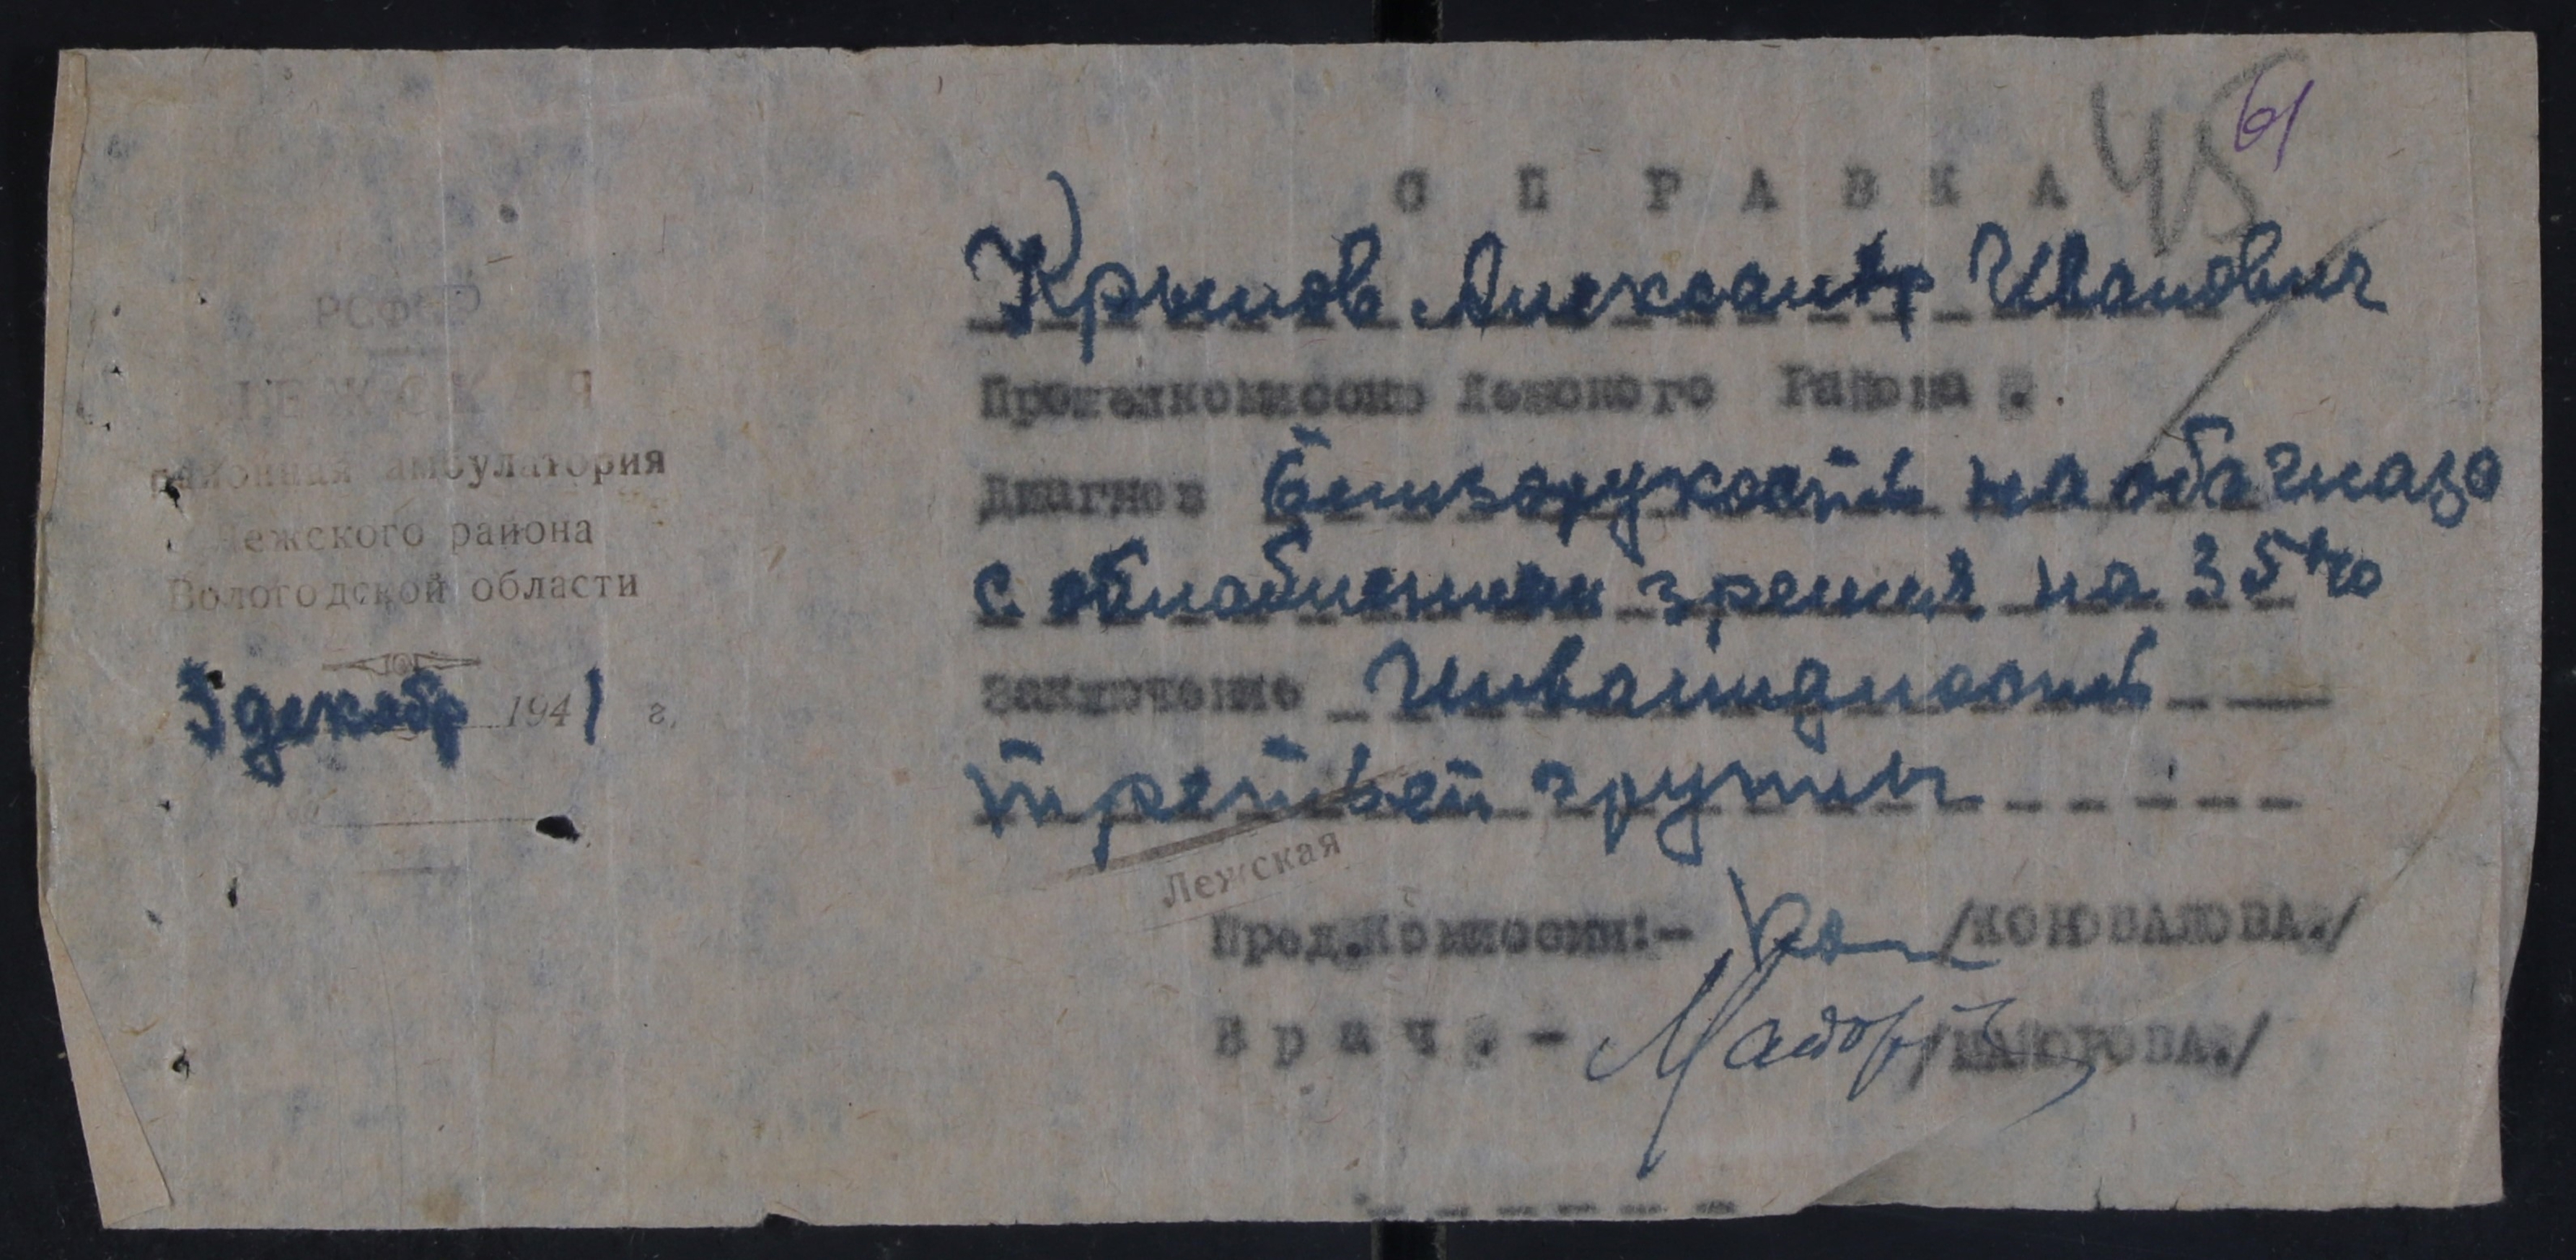 РСФСР
ЛЕЖСКАЯ
районная амбулатория
Лежского района
Вологодской области
3 декабр 1941 г.
№
45
61
С П Р А В К А
Крылов Александр Иванович
Лежского Района.
Диагноз близорукость на оба глаза
с ослаблением зрения на 35%
Заключение Инвалидность
третьей группы
Лежская
Пред.Комиссии:- /КОНОВАЛОВА./
Врач.- Майор /МАЙОРОВА./